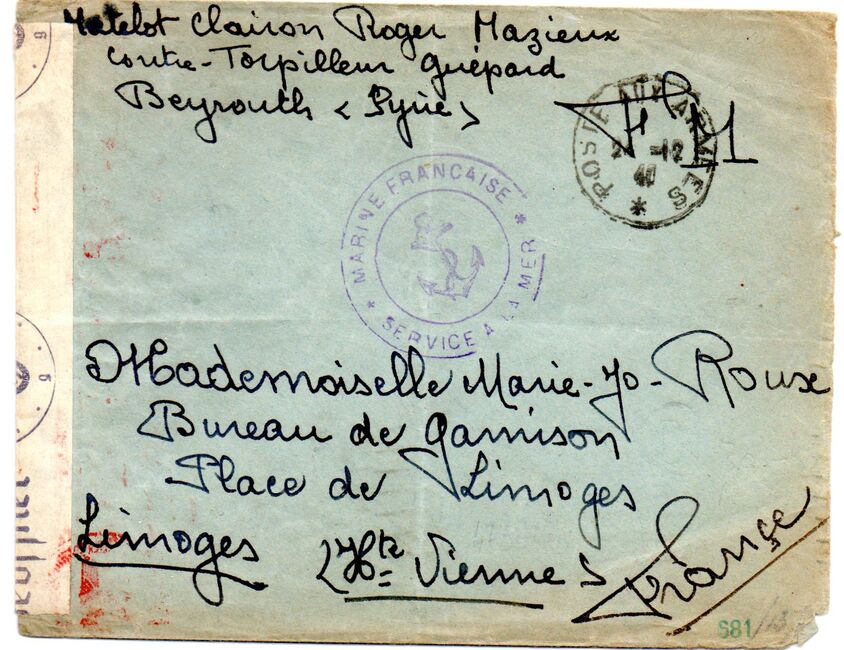 Matelot Clairon Roger Mazieux
Contre-Torpilleur Guépard
Beyrouth (Syrie)
F M
POSTE AUX ARMEES *
2 -12
* MARINE FRANCAISE *
SERVICE A LA MER
Mademoiselle Marie-Jo-Roux
Bureau de Garnison
Place de Limoges
Limoges (Hte Vienne)
France
681/13